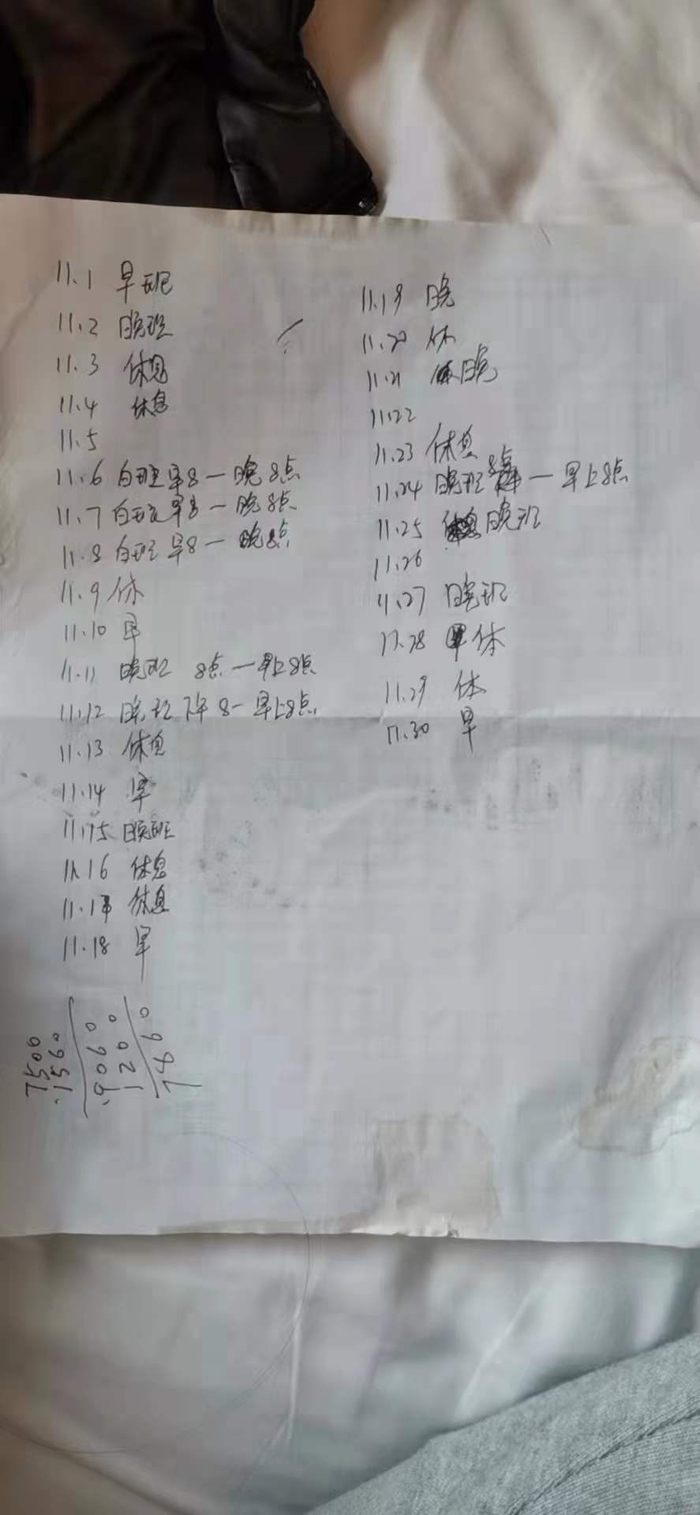 11.1 早班
11.2 晚班
11.3 休息
11.4 休息
11.5
11.6 白班早8一晚8点
11.7 白班早8一晚8点
11.8 白班早8一晚8点
11.9 休
11.10 早
11.11 晚班 8点一早上8点
11.12 晚班下午8一早上8点
11.13 休息
11.14 早
11.15 晚班
11.16 休息
11.17 休息
11.18 早
11.19 晚
11.20 休
11.21 晚
11.22
11.23 休息
11.24 晚班8点一早上8点
11.25 晚班
11.26
11.27 晚班
11.28 休
11.29 休
11.30 早
7500
1560